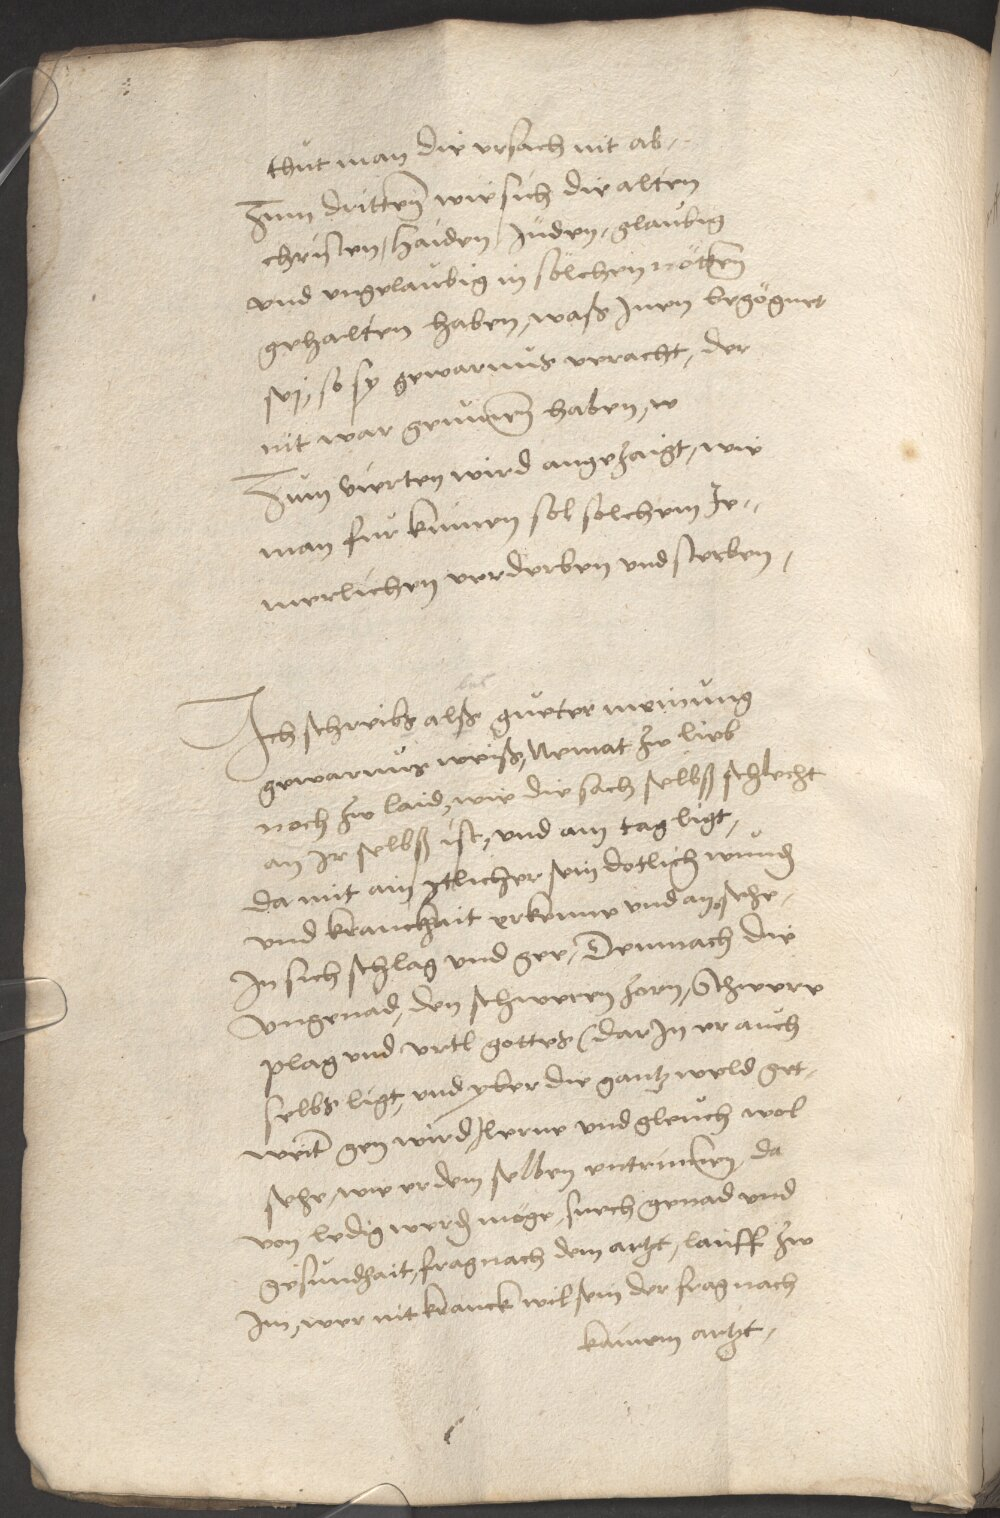 thut man die ursach nit ab,
Zum dritten wie sich die alten
christen, Haiden, Juden, glaubig
und unglaubig in sölchein nötten
gehalten haben, waß Jnen begögnet
sej, so sy gewarnus veracht, der
nit war genumen haben, etc
Zum vierten wird angezaigt, wie
man fur kumen sol solchem Je-
merlichen verderben und sterben,
Jch schreibs alß gueter mainung
gewarnus weiß, Nemat zw lieb
noch zw laid, wie die sach selbß schlecht
an ir selbß ist, und am tag ligt,
damit ain ytlicher sein dotlich wund
und kranckhait erkenne und an sehe,
Jn sich schlag und gee, Demnach die
ungenad, den schweren zorn, Schwere
plag und urtl gottes (dar Jn er auch
selbs ligt, und yber die gantz weld get,
weit gen wird) lerne und gleich wol
sehe, wie er dem selben entrinnen, da
von ledig werd möge, suech genad und
gesundhait, frag nach dem artzt, lauff zw
Jm, wer nit kranck wil sein der frag nach
kainem artzt,